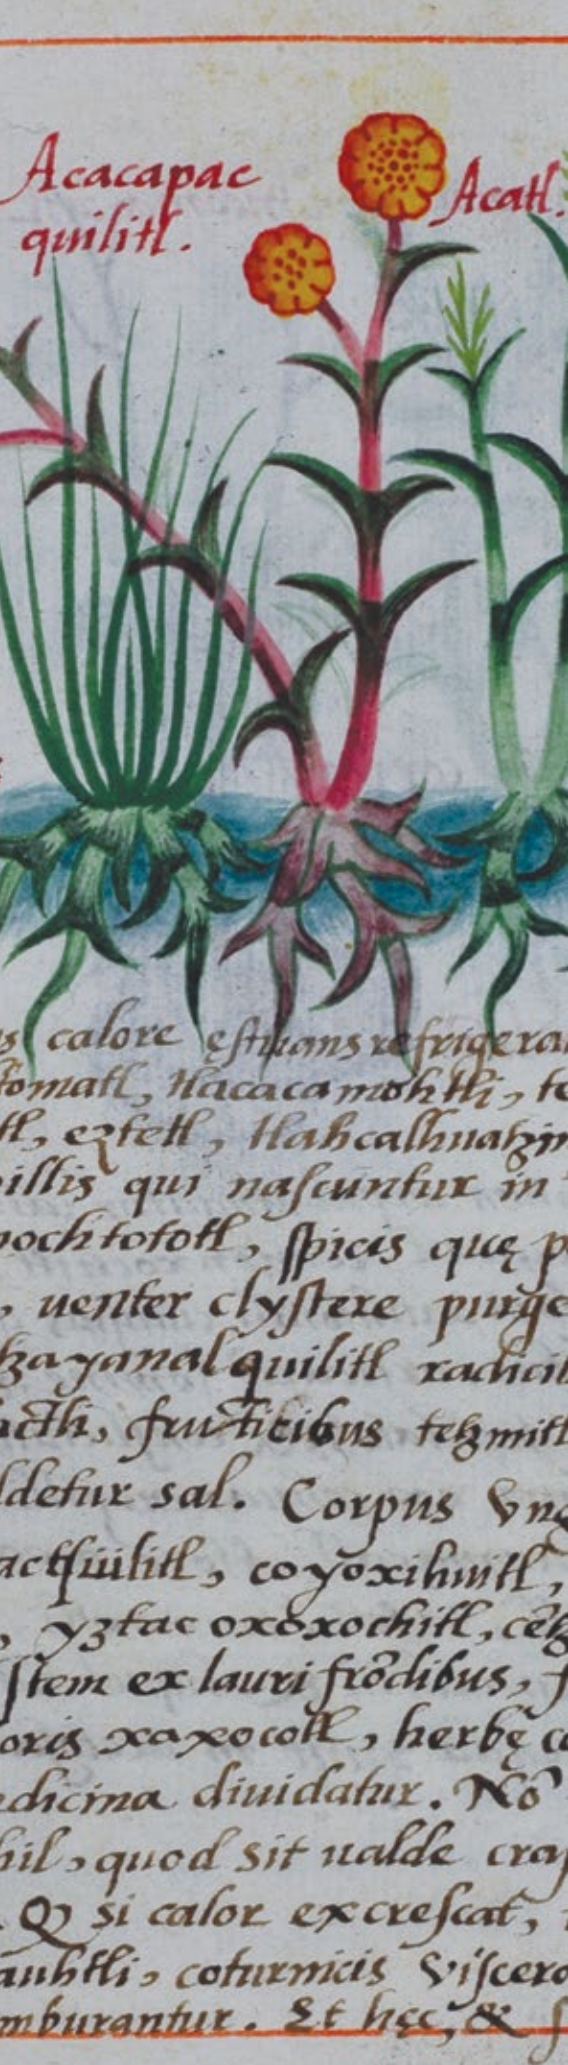 Acacapac
quilitl.
Acatl.
calore ęstuans refrigera
tomatl, tlacacamohtli, te
tl, eztetl, tlahcalhuatzin
illis qui nascuntur in
pochtototl, spicis quę p
, uenter clystere purge
tzayanalquilitl radicib
actli, fruticibus tetzmitl
ldetur sal. Corpus Vng
coyoxihuitl,
, yztac oxoxochitl,
stem ex lauri frõdibus, f
oris xaxocotl, herbę c
edicina diuidatur. Nõ
hil, quod sit ualde cras
. Q si calor excrescat,
auhtli, coturnicis Viscer
mburantur. Et hęc, & f